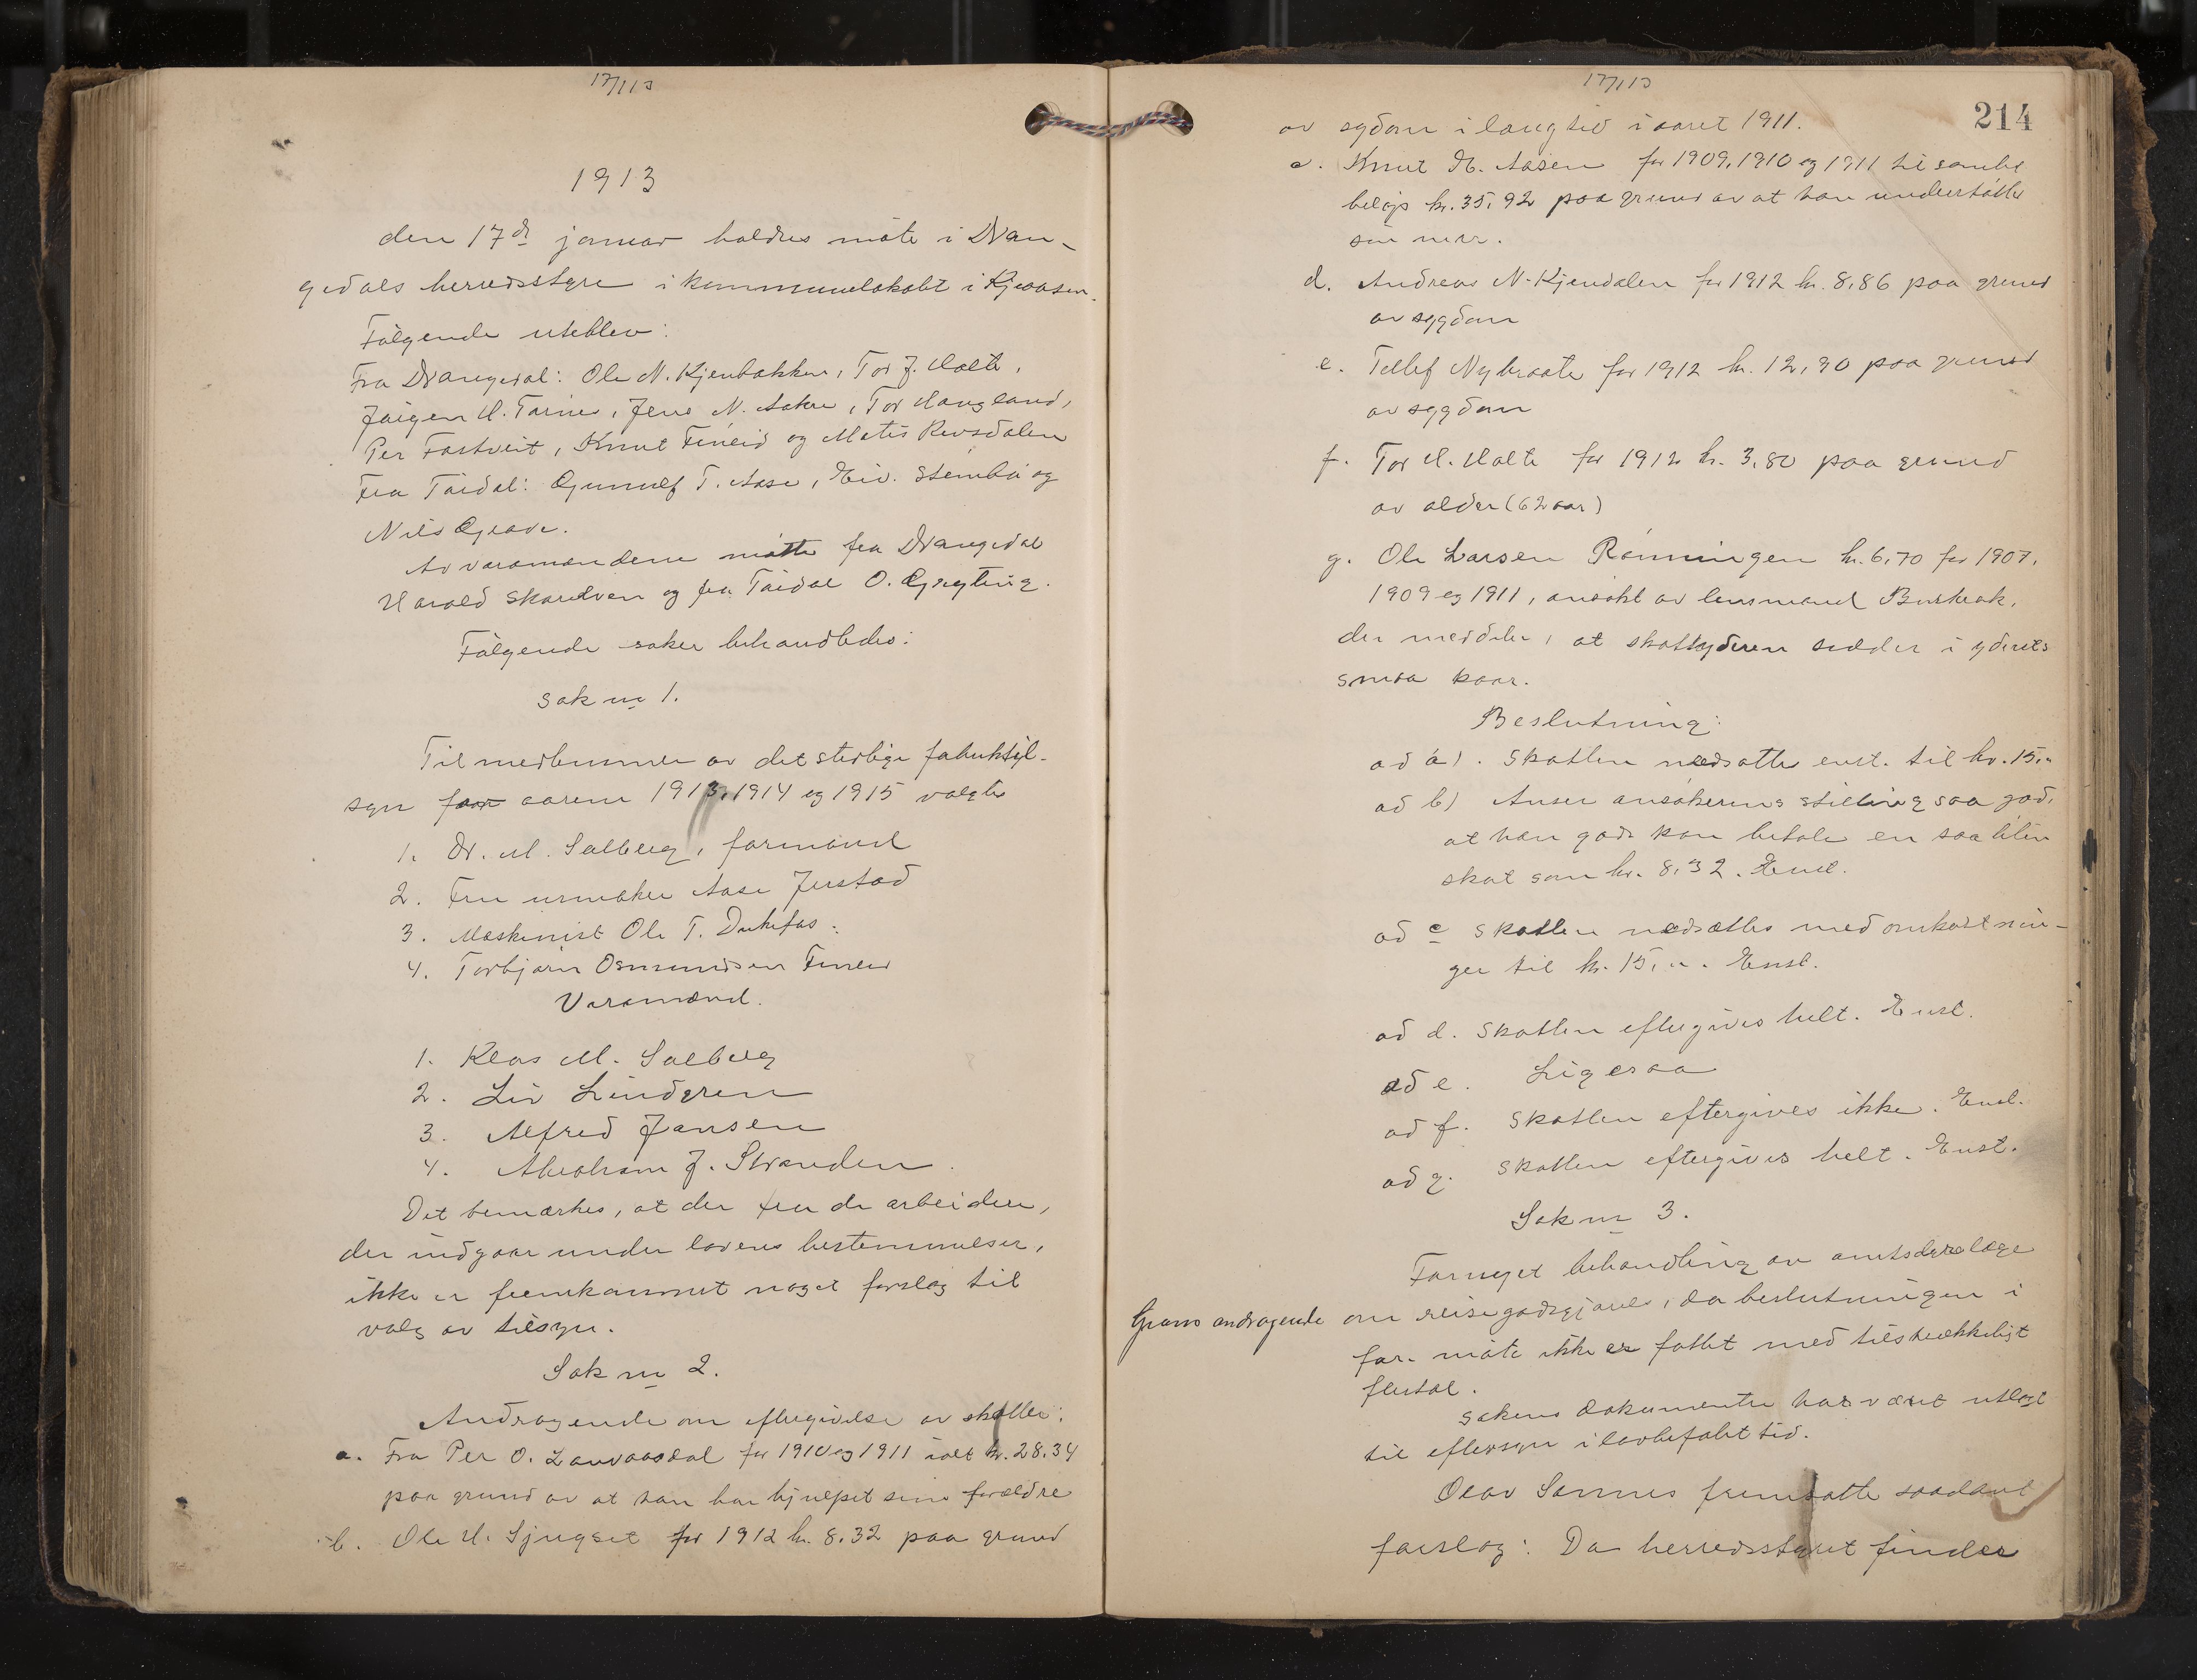 17/1 13
1913
den 17de januar holdtes møte i Dran-
gedals herredsstyre i kommunelokalet i Kjeaasen.
Følgende uteblev:
Fra Drangedal: Ole N. Kjenbakken, Tor J. Holte,
Jørgen H. Tørnes, Jens N. Aakre, Tor Haugland,
Per Fostveit, Knut Fineid og Matis Revsdalen
Fra Tørdal: Gunnulf T. Aase, Eiv. Steinbø og
Nils Grave.
Av varamændene møtte fra Drangedal
Harold Skarelven og fra Tørdal O. Grøgting.
Følgende saker behandledes:
Sak nr 1.
Til medlemmer av det stedlige fabriktil-
syn for aarene 1913, 1914 og 1915 valgtes
1. Dr. M. Salberg, formand
2. Fru urmaker Aase Jerstad
3. Maskinist Ole T. Dukefos.
4. Torbjørn Osmundsen Fineid
Varamænd.
1. Klas M. Salberg
2. Liv Lindgren
3. Alfred Jansen
4. Abraham J. Stranden.
Det bemærkes, at der fra de arbeidere,
der indgaar under lovens bestemmelser,
ikke er fremkommet noget forslag til
valg av tilsyn.
Sak nr 2.
Andragende om eftergivelse av skatter:
a. Fra Per O. Lauvaasdal for 1910 og 1911 ialt kr. 28.34
paa grund av at han har hjulpet sine forældre
b. Ole H. Sjugset for 1912 kr. 8.32 paa grund
17/1 13
214
av sygdom i lang tid i aaret 1911.
c. Knut H. Aasen for 1909, 1910 og 1911 til samlet
beløp kr. 35,92 paa grund av at han understøtter
sin mor.
d. Andreas N. Kjendalen for 1912 kr. 8,86 paa grund
av sygdom
e. Tellef Nybraate for 1912 kr. 12,90 paa grund
av sygdom
f. Tor H. Holte for 1912 kr. 3,80 paa grund
av alder (62 aar)
g. Ole Larsen Rønningen kr. 6,70 for 1907,
1909 og 1911, ansøkt av lensmand Buskrak,
der meddeler, at skatteyderen sidder i yderst
smaa kaar.
Beslutning:
ad a). Skatten nedsættes enst. til kr. 15,"
ad b) Anser ansøkerens stilling saa god,
at han godt kan betale en saa liten
skat som kr. 8,32. Enst.
ad c Skatten nedsættes med omkostnin-
ger til kr. 15, ". Enst.
ad d. Skatten eftergives helt. Enst.
ad e. Ligesaa
ad f. Skatten eftergives ikke. Enst.
ad g. Skatten eftergives helt. Enst.
Sak nr 3.
Fornyet behandling av amtsdyrlæge
Grans andragende om reisegodtgjørelse, da beslutningen i
for. møte ikke er fattet med tilstrækkeligt
flertal.
Sakens dokumenter har været utlagt
til eftersyn i lovbefalet tid.
Olav Sannes fremsatte saadant
forslag: Da herredsstyret finder